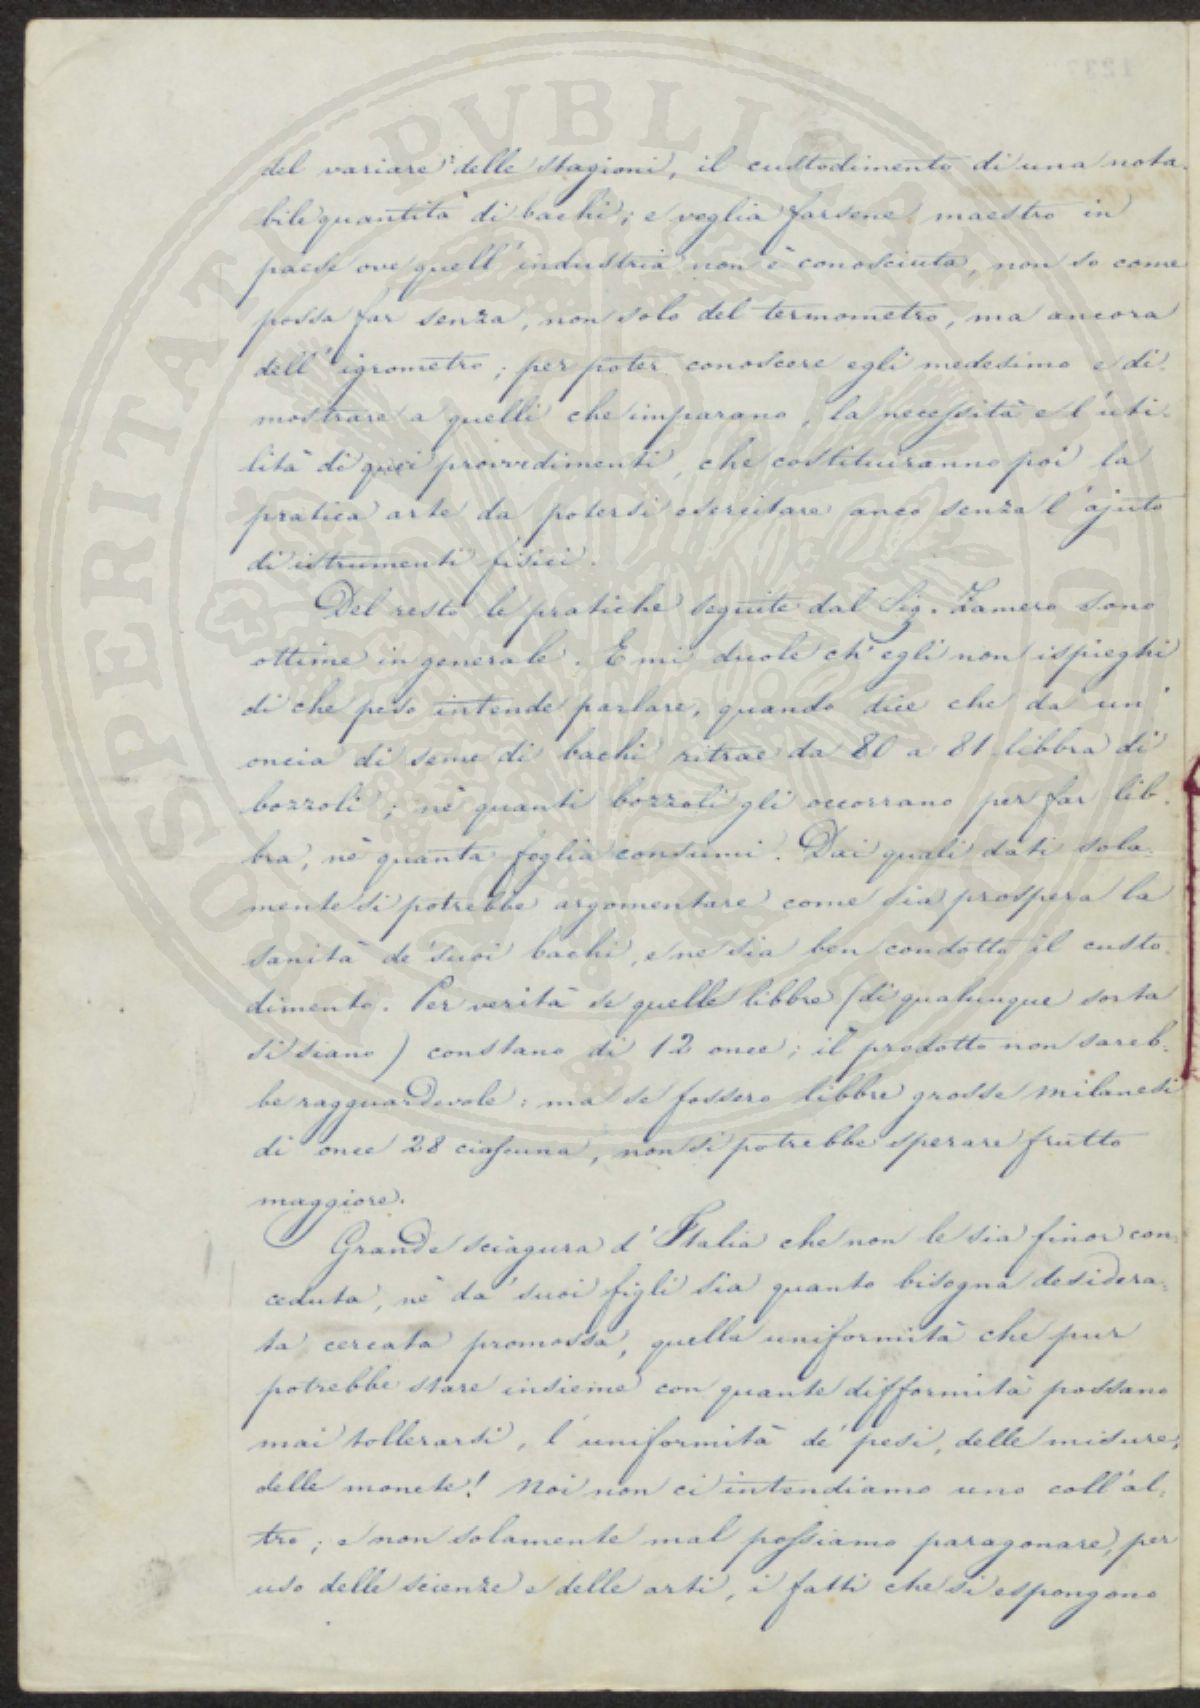 del variare delle stagioni, il custodimento di una nota-
bile quantità di bachi; e voglia farsene maestro in
paese ove quell'industria non è conosciuta, non so come
possa far senza, non solo del termometro, ma ancora
dell'igrometro; per poter conoscere egli medesimo e di-
mostrare a quelli che imparano, la necessità e l'uti-
lità di quei provvedimenti, che costituiranno poi la
pratica arte da potersi esercitare anco senza l'ajuto
di istrumenti fisici.
Del resto le pratiche seguite dal Sig. Zamero sono
ottime in generale. E mi duole ch'egli non ispieghi
di che peso intende parlare, quando dice che da un'
oncia di seme di bachi ritrae da 80 a 81 libbra di
bozzoli; nè quanti bozzoli gli occorrano per far lib-
bra, nè quanta foglia consumi. Dai quali dati sola-
mente si potrebbe argomentare come sia prospera la
sanità de' suoi bachi, e ne sia ben condotto il custo-
dimento. Per verità se quelle libbre (di qualunque sorta
si siano) constano di 12 once; il prodotto non sareb-
be ragguardevole: ma se fossero libbre grosse milanesi
di once 28 ciascuna, non si potrebbe sperare frutto
maggiore.
Grande sciagura d'Italia che non le sia finor con-
ceduta, nè da' suoi figli sia quanto bisogna desidera-
ta cercata promossa, quella uniformità che pur
potrebbe stare insieme con quante difformità possano
mai tollerarsi, l'uniformità de' pesi, delle misure,
delle monete! Noi non ci intendiamo uno coll'al-
tro; e non solamente mal possiamo paragonare, per
uso delle scienze e delle arti, i fatti che si espongono
PROSPERITATI PUBLICAE